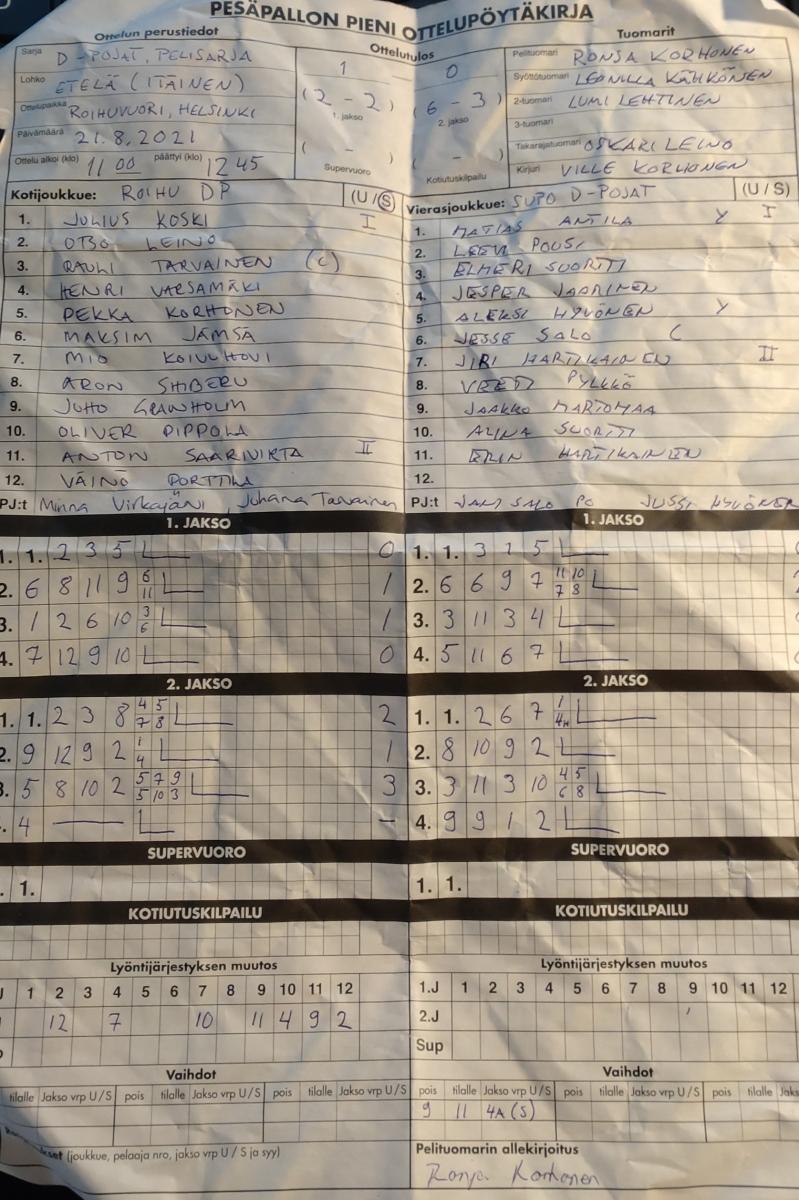 PESÄPALLON PIENI OTTELUPÖYTÄKIRJA
Ottelun perustiedot
Sarja D-POJAT, PELISARJA
Lohko ETELÄ (ITÄINEN)
Ottelupaikka ROIHUVUORI, HELSINKI
Päivämäärä 21.8.2021
Ottelu alkoi (klo) 11 00 päättyi (klo) 12 45
Ottelutulos
1 0
(2 - 2) (6 - 3)
1. jakso 2. jakso
( - ) ( - )
Supervuoro Kotiutuskilpailu
Tuomarit
Pelituomari RONJA KORHONEN
Syöttötuomari LEONILLA KÄHKÖNEN
2-tuomari LUMI LEHTINEN
3-tuomari
Takarajatuomari OSKARI LEINO
Kirjuri VILLE KORHONEN
Kotijoukkue: ROIHU DP (U / S)
1. JULIUS KOSKI I
2. OTSO LEINO
3. RAULI TARVAINEN (C)
4. HENRI VARSAMÄKI
5. PEKKA KORHONEN
6. MAKSIM JÄMSÄ
7. MIO KOIVUHOVI
8. ARON SHIBERU
9. JUHO GRANHOLM
10. OLIVER PIPPOLA
11. ANTON SAARIVIRTA II
12. VÄINÖ PORTTILA
PJ:t Minna Virkajärvi, Johanna Tarvainen
Vierasjoukkue: SUPO D-POJAT (U / S)
1. MATIAS ANTILA Y I
2. LEEVI POUSI
3. ELMERI SUORTTI
4. JESPER JAARINEN
5. ALEKSI HYVÖNEN Y
6. JESSE SALO C
7. JIRI MARTIKAINEN II
8. VEETI PYLKKÖ
9. JAAKKO MARTOMAA
10. ALINA SUORTTI
11. ERIN MARTIKAINEN
12.
PJ:t JANI SALO PO JUSSI HYVÖNEN
1. JAKSO
1. 1. 2 3 5 0
2. 6 8 11 9 6 11 1
3. 1 2 6 10 3 6 1
4. 7 12 9 10 0
2. JAKSO
1. 1. 2 3 8 4 5 7 8 2
2. 9 12 9 2 1 4 1
3. 5 8 10 2 5 7 9 5 10 3 3
. 4 — –
SUPERVUORO
. 1.
KOTIUTUSKILPAILU
Lyöntijärjestyksen muutos
1 2 3 4 5 6 7 8 9 10 11 12
12 7 10 11 4 9 2
Vaihdot
tilalle Jakso vrp U/S pois tilalle Jakso vrp U/S pois tilalle Jakso vrp U/S
(joukkue, pelaaja nro, jakso vrp U / S ja syy)
1. JAKSO
1. 1. 3 1 5
2. 6 6 9 7 11 10 7 8
3. 3 11 3 4
4. 5 11 6 7
2. JAKSO
1. 1. 2 6 7 1
2. 8 10 9 2
3. 3 11 3 10 4 5 6 8
4. 9 9 1 2
SUPERVUORO
1. 1.
KOTIUTUSKILPAILU
Lyöntijärjestyksen muutos
1.J 1 2 3 4 5 6 7 8 9 10 11 12
2.J
Sup
Vaihdot
pois tilalle Jakso vrp U/S pois tilalle Jakso vrp U/S pois tilalle
9 11 4A (S)
Pelituomarin allekirjoitus
Ronja Korhonen